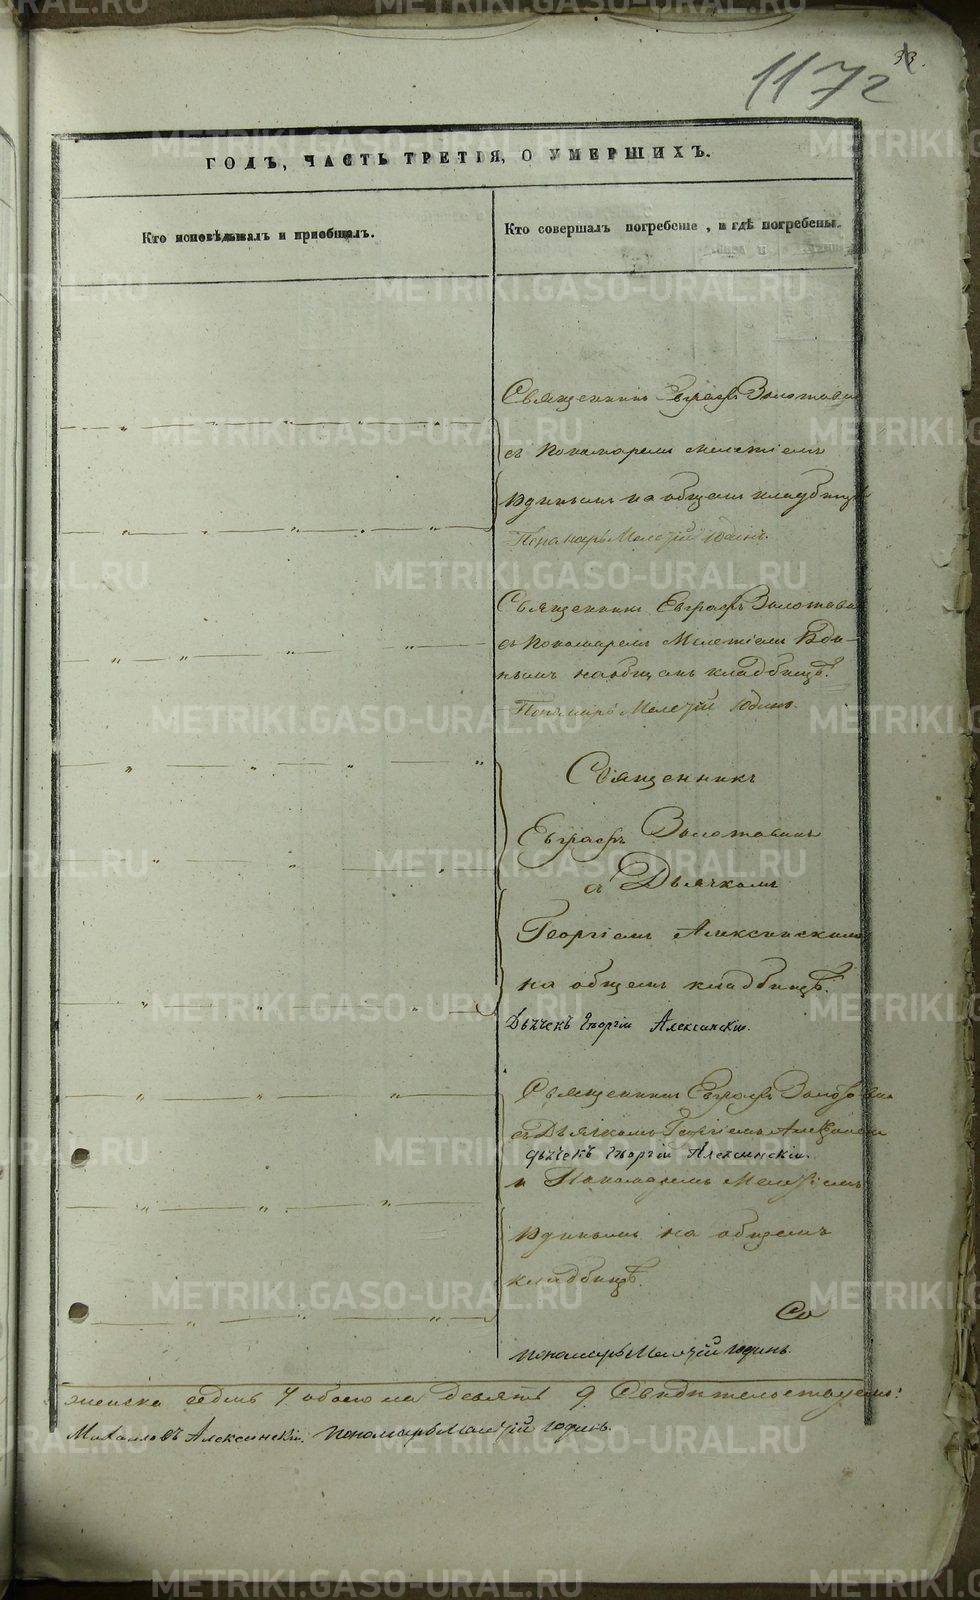 33.
1172
ГОДЪ, ЧАСТЬ ТРЕТІЯ, О УМЕРШИХЪ.
Кто исповѣдывалъ и пріобщалъ.
Кто совершалъ погребеніе, и гдѣ погребены.
Священникъ Евграфъ Золотавинъ
съ Пономаремъ Мелетіемъ
Юдинымъ на общемъ кладбищѣ
Пономарь Мелетій Юдинъ.
Священникъ Евграфъ Золотавинъ
съ Пономаремъ Мелетіемъ Юди-
нымъ на общемъ кладбищѣ.
Пономарь Мелетій Юдинъ.
Священникъ
Евграфъ Золотавинъ
съ Дьячкомъ
Георгіемъ Алексинскимъ
на общемъ кладбищѣ.
Дьячекъ Георгій Алексинскій.
Священникъ Евграфъ Золотавинъ
съ Дьячкомъ Георгіемъ Алексинскимъ
дьячекъ Георгій Алексинскій.
и Пономаремъ Мелетіемъ
Юдинымъ на общемъ
кладбищѣ.
Со
пономарь Мелетій Юдинъ.
женска седмь 7 обоего девять 9. Свидѣтельствуемъ:
Михаиловъ Алексинскій. пономарь Мелетій Юдинъ.
METRIKI.GASO-URAL.RU